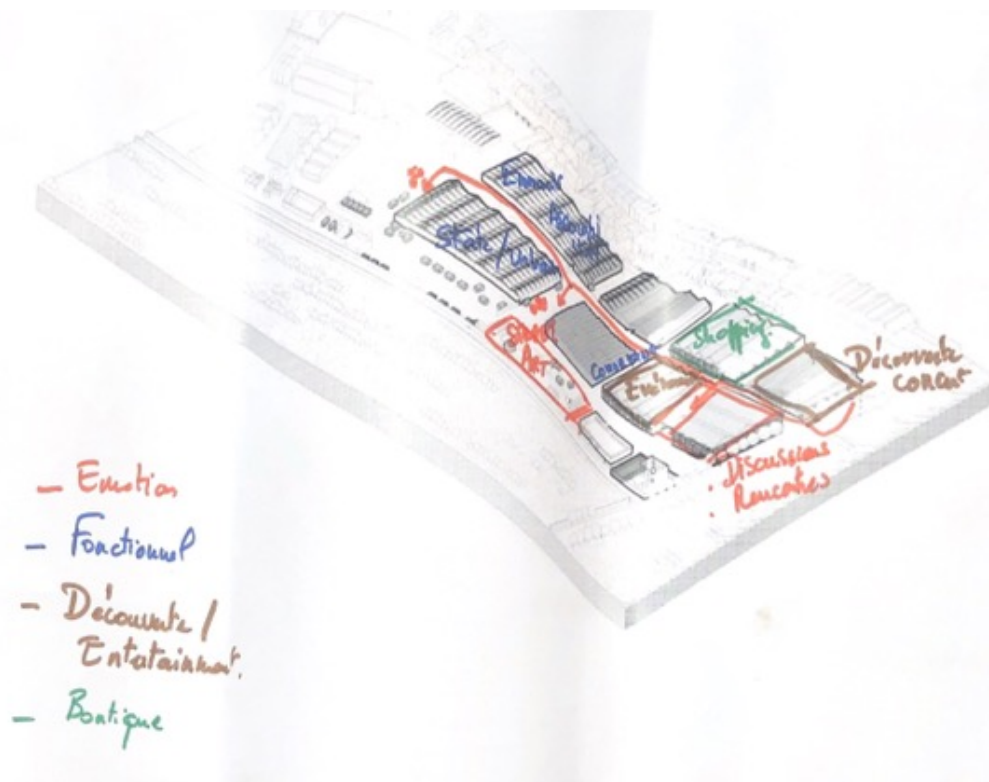 Skate / Urban
Street
Art
Shopping
Découverte
concert
. Discussions
. Rencontres
– Emotion
– Fonctionnel
– Découverte /
Entertainment.
– Boutique